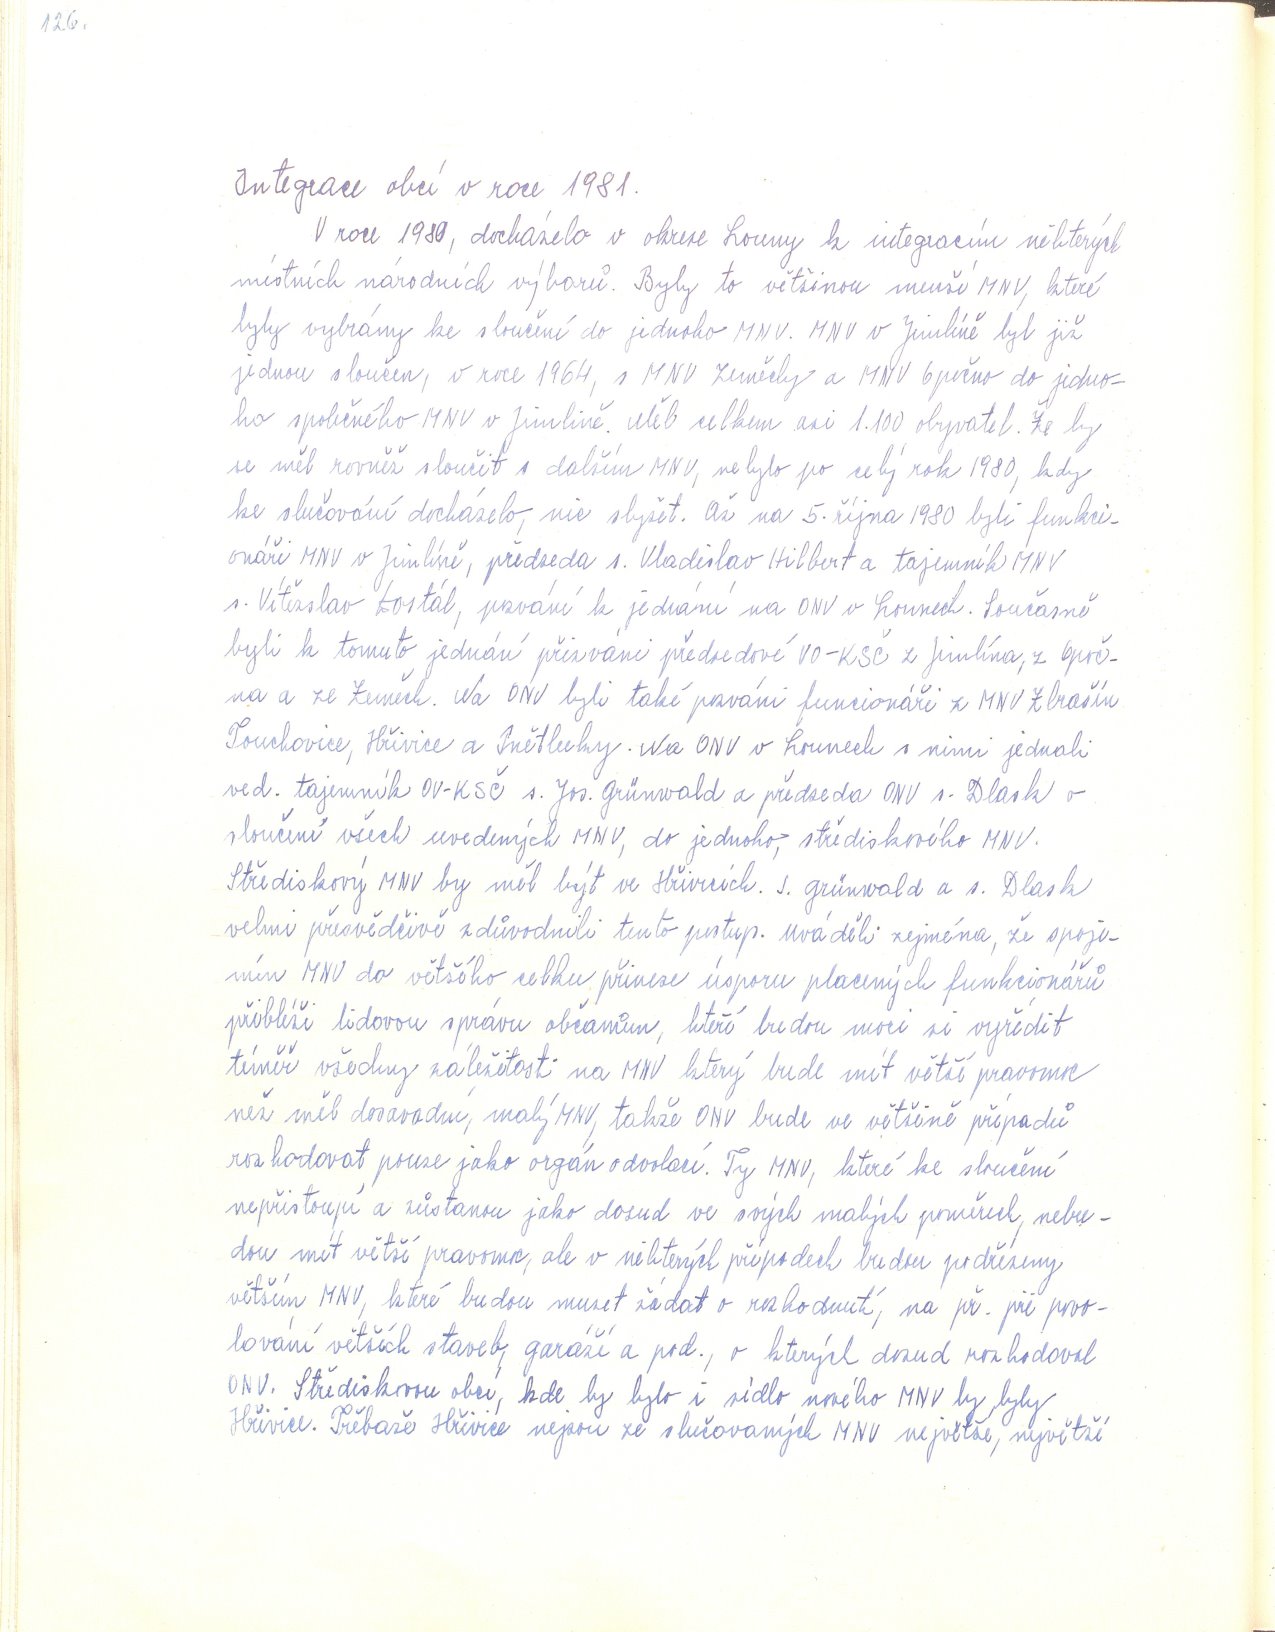 126.
Integrace obcí v roce 1981.
V roce 1980, docházelo v okrese Louny k integracím některých
místních národních výborů. Byly to většinou menší MNV, které
byly vybrány ke sloučení do jednoho MNV. MNV v Jimlíně byl již
jednou sloučen, v roce 1964, s MNV Zeměchy a MNV Opočno do jedno-
ho společného MNV v Jimlíně. Měl celkem asi 1.100 obyvatel. Že by
se měl rovněž sloučit s dalším MNV, nebylo po celý rok 1980, kdy
ke slučování docházelo, nic slyšet. Až na 5. října 1980 byli funkci-
onáři MNV v Jimlíně, předseda s. Vladislav Hilbert a tajemník MNV
s. Vítězslav Dostál, pozváni k jednání na ONV v Lounech. Současně
byli k tomuto jednání přizváni předsedové VO-KSČ z Jimlína, z Opoč-
na a ze Zeměch. Na ONV byli také pozváni funcionáři z MNV Zbrašín
Touchovice, Hřivice a Pnětluky. Na ONV v Lounech s nimi jednali
ved. tajemník OV-KSČ s. Jos. Grünwald a předseda ONV s. Dlask o
sloučení všech uvedených MNV, do jednoho, střediskového MNV.
Střediskový MNV by měl být ve Hřivicích. S. Grünwald a s. Dlask
velmi přesvědčivě zdůvodnili tento postup. Uváděli zejména, že spoje-
ním MNV do většího celku přinese úsporu placených funkcionářů
přiblíží lidovou správu občanům, kteří budou moci si vyřídit
téměř všechny záležitosti na MNV který bude mít větší pravomoc
než měl dosavadní, malý MNV, takže ONV bude ve většině případů
rozhodovat pouze jako orgán odvolací. Ty MNV, které ke sloučení
nepřistoupí a zůstanou jako dosud ve svých malých poměrech, nebu-
dou mít větší pravomoc, ale v některých případech budou podřízeny
větším MNV, které budou muset žádat o rozhodnutí, na př. při povo-
lování větších staveb, garáží a pod., o kterých dosud rozhodoval
ONV. Střediskovou obcí, kde by bylo i sídlo nového MNV by byly
Hřivice. Třebaže Hřivice nejsou ze slučovaných MNV největší, největší